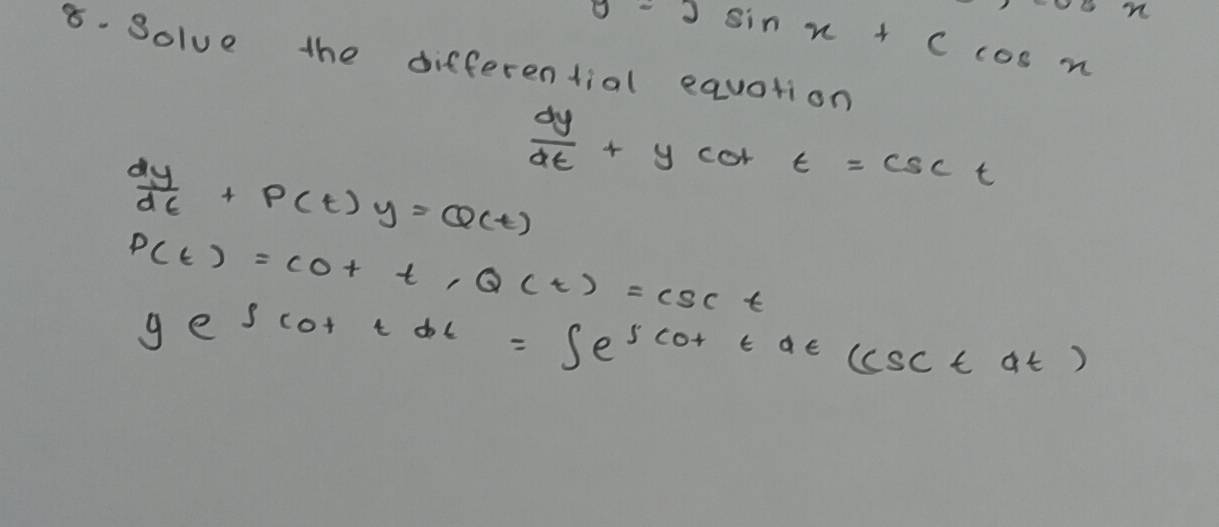 y = 5 sin x + C cos x
8. Solve the differential equation
dy/dt + y cot t = csc t
dy/dt + P(t) y = Q(t)
P(t) = cot t, Q(t) = csc t
y e^∫cot t dt = ∫e^∫cot t dt (csc t dt)